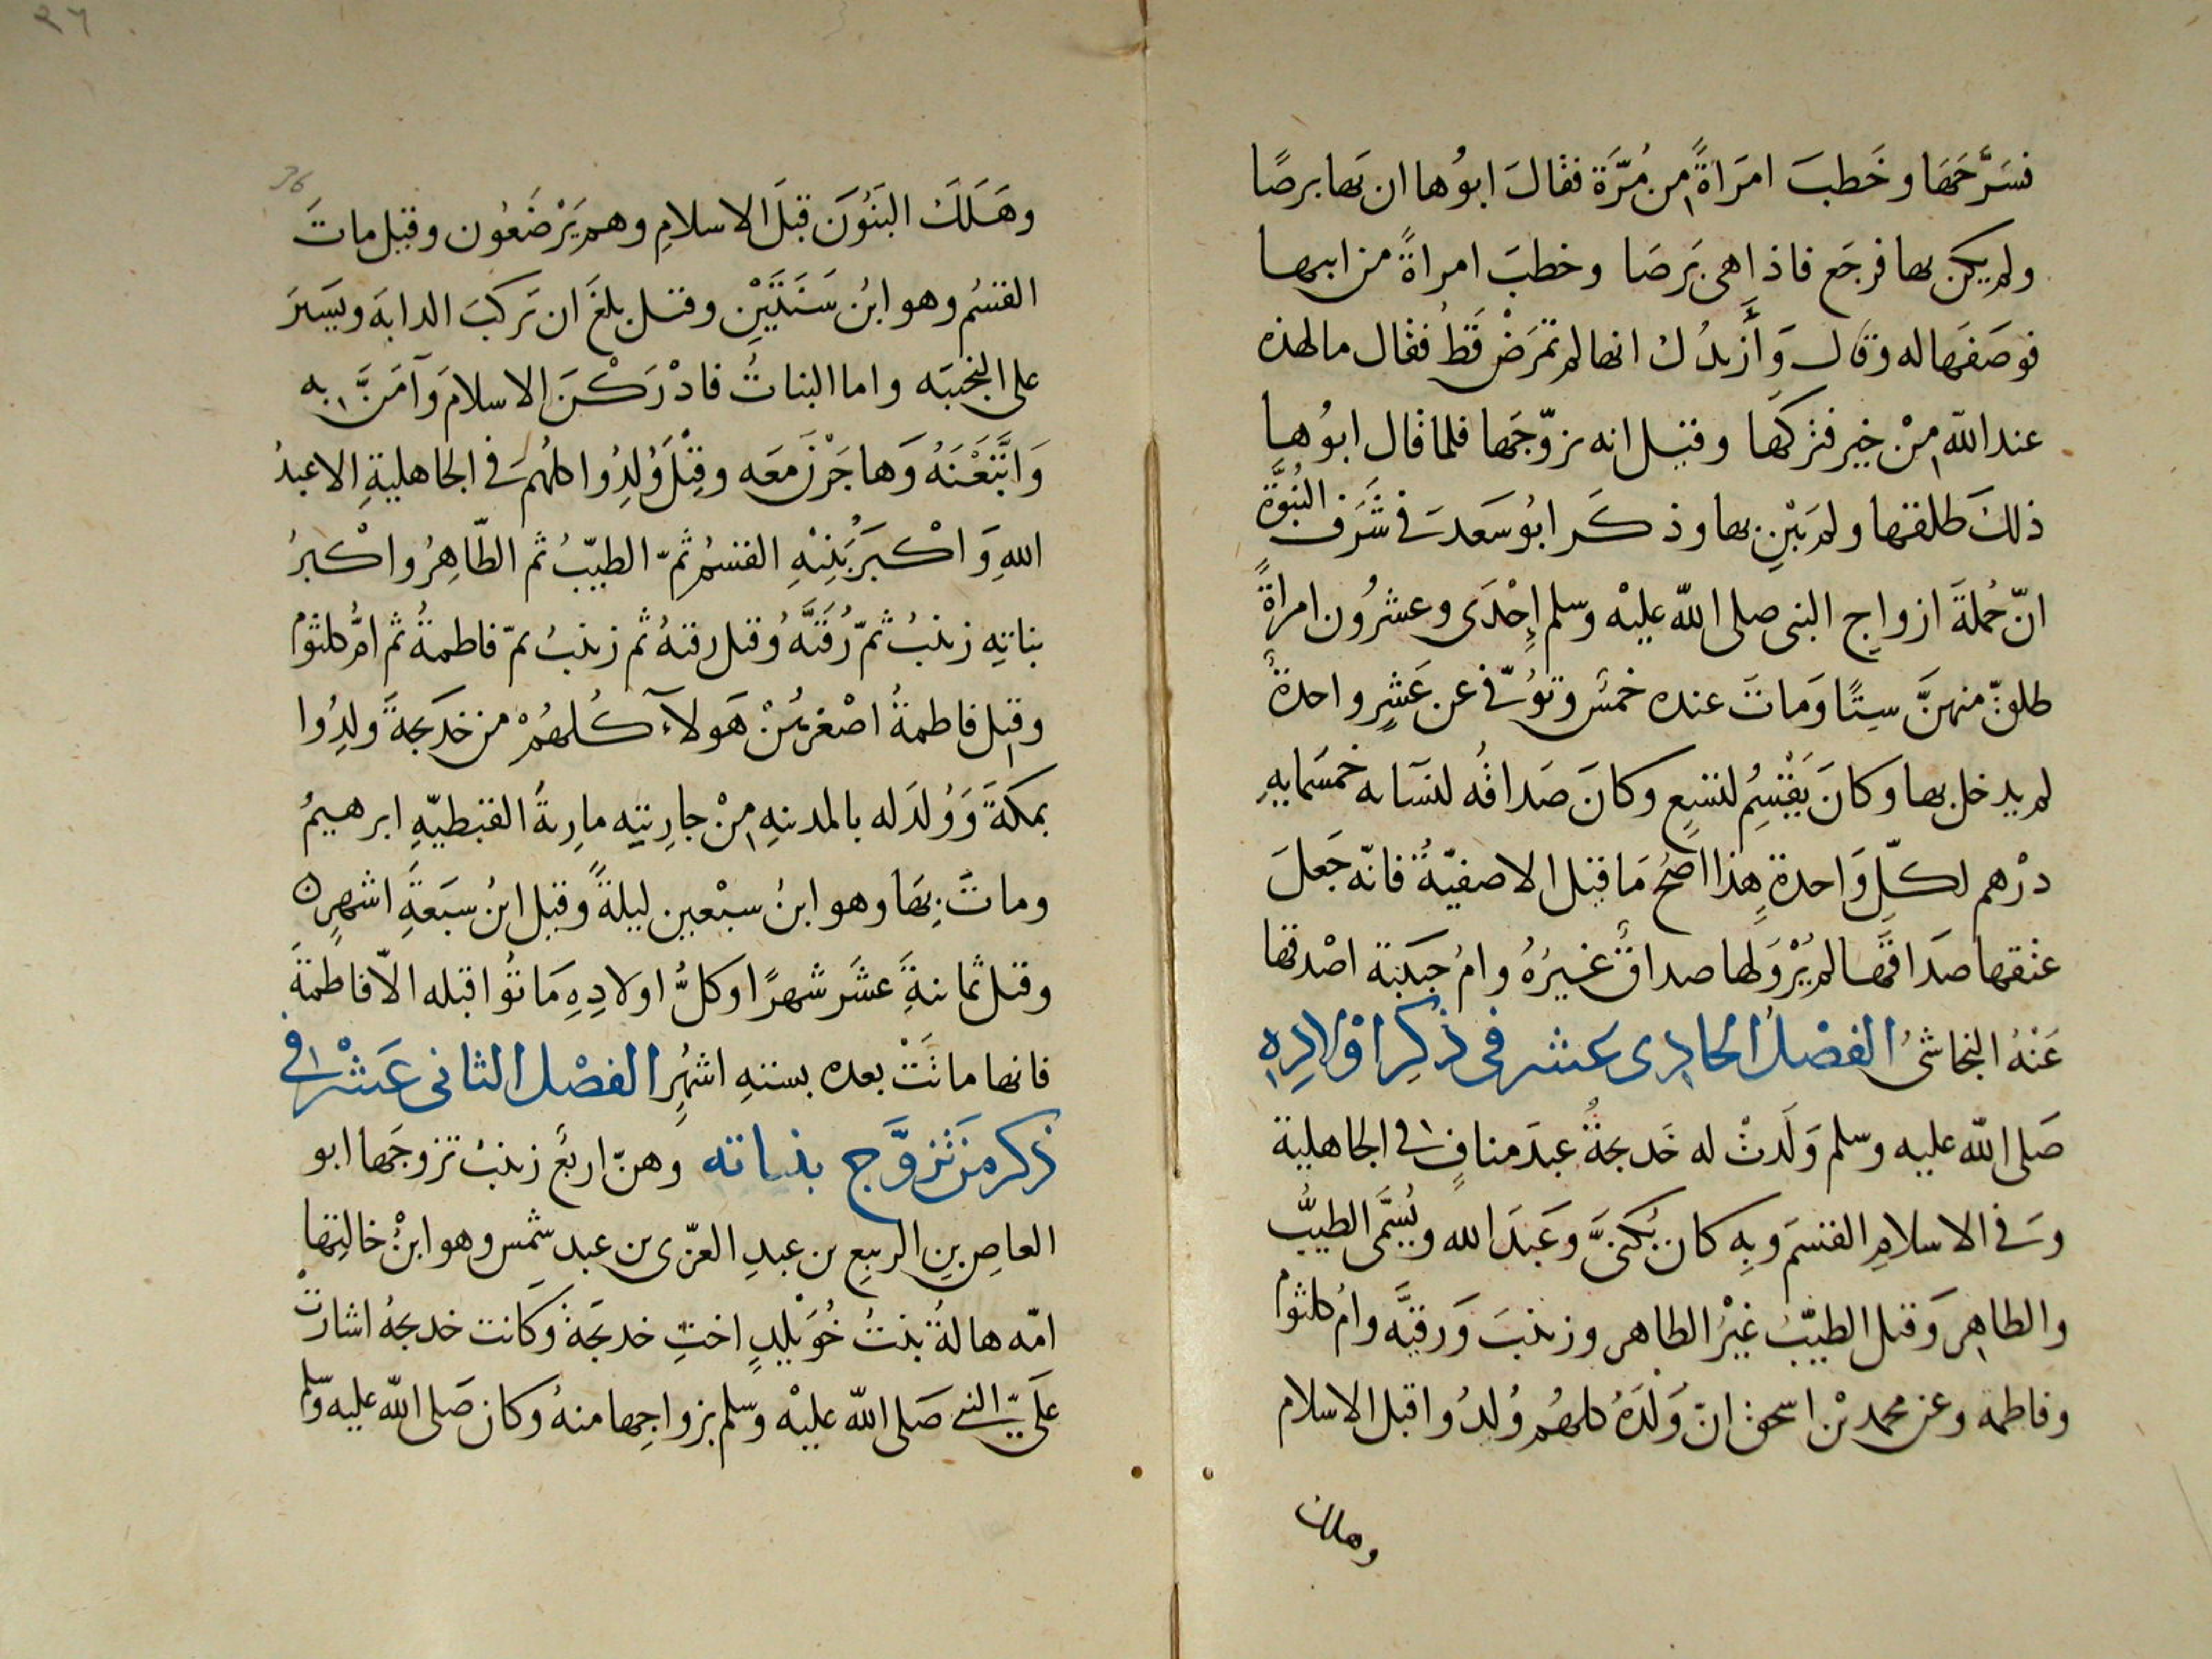 فسَرَّحَهَا وخَطبَ امرَاةً مِن مُرَّة فقالَ ابوُها ان بهَا برصًا
ولم يكن بها فرجَع فاذا هى بَرصَا وخطبَ امراةً من ابيها
فوصَفَهَا له وقال وَأَزيدُك انها لم تمرَضْ قَطُ فقال ما لهذه
عند اللّه مِنْ خيرٍ فتركها وقيل انه تزوّجَها فلما قال ابوُها
ذلكَ طلقها ولم يَبْنِ بها وذكَر ابوُ سَعد فى شَرَف النُبُوَّة
انّ جُملةَ ازواجِ النبى صلى اللّه عليْه وسلم إِحْدَى وعشرُون امراةً
طلقّ منهنَّ سِتًا وَماتَ عنده خمسٌ وتوُفّى عن عَشرٍ واحدةٌ
لم يدخل بها وكانَ يَقْسِمُ لتسْعٍ وكانَ صَداقُه لنسَآئه خمسَمايهِ
درْهم لكلِّ وَاحدةٍ هذا اصَحُ مَا قيل الا صفيّةُ فانّه جَعلَ
عتقها صدَاقَها لم يُرْوَ لها صداقٌ غيرُهُ وامُ حبيبة اصْدقها
عَنْهُ النجاشىُ الفصْلُ الحادِى عشر فى ذكِر اوْلادِهِ
صَلى اللّه عليه وسلم وَلَدتْ له خَديجةُ عبدَ منافٍ فى الجاهلية
وَفى الاسلامِ القسَمَ وَبِه كان يُكَنىَّ وَعَبدَ الله ويُسَمَّى الطيبُّ
والطاهِر وَقيل الطيبّبُ غيْرُ الطاهر وزينبَ وَرقيَّه وامُ كلثوُم
وفاطمة وعن محمد بْن اسحق انّ وَلَدَهُ كلهُم وُلدُوا قبل الاسلام
وهلك
٣٦
36
وهَلَكَ البَنُوَن قبْلَ الاسلامِ وهم يَرْضَعُون وقيل ماتَ
القسُم وهو ابُن سَنَتَيْنِ وقيل بلغَ ان يَركبَ الدابهَ ويسَيرَ
على النجيبَه واما البناتُ فادْرَكْنَ الاسلامَ وَآمَنَّ بِه
وَاتَّبَعْنَهُ وَهاجَرْنَ معَه وقِيْلَ وُلِدُوا كلهُم فى الجاهليةِ الا عبدُ
اللهِ وَاكْبَرُ بَنِيْهِ القسمُ ثمّ الطيّبُ ثم الطّاهِرُ واكْبرُ
بناتِه زينبُ ثمّ رُقَيَّهُ وَقيل رقيهُ ثم زينبُ ثمّ فاطمةُ ثم امُّ كلثوُم
وقِيل فاطمةُ اصْغرهُنْ هَولآء كُلهُمْ من خديجةَ ولِدُوا
بمكةَ وَوُلدَ له بالمدينهِ مِنْ جارِيتِه مارِيةُ القبطيّهِ ابرهيمُ
وماتَ بِهَا وهو ابنُ سبْعين ليلةً وقيل ابنُ سبَعةَِ اشهرٍ
وقيل ثمانيةَِ عشَر شهرًا وكلُّ اولادِهِ مَاتوُا قبله الاّ فاطمةَ
فانها ماتَتْ بعده بستهِ اشهُرٍ الفصْل الثانى عَشْر فى
ذكر مَن تزوَّج بناته وَهنّ اربعُ زينبُ تزوجَها ابو
العاصِ بنِ الربيعِ بن عبدِ العزّى بن عبد شمس وهو ابنُ خالتِها
امّه هالةُ بنتُ خُوَيْلِدٍ اختِ خديجَة وَكانت خديجهُ اشارتْ
علَىّ النبى صَلى اللّه عليْه وسلم بزواجِها منهُ وَكان صَلى اللّه عليه وسلم